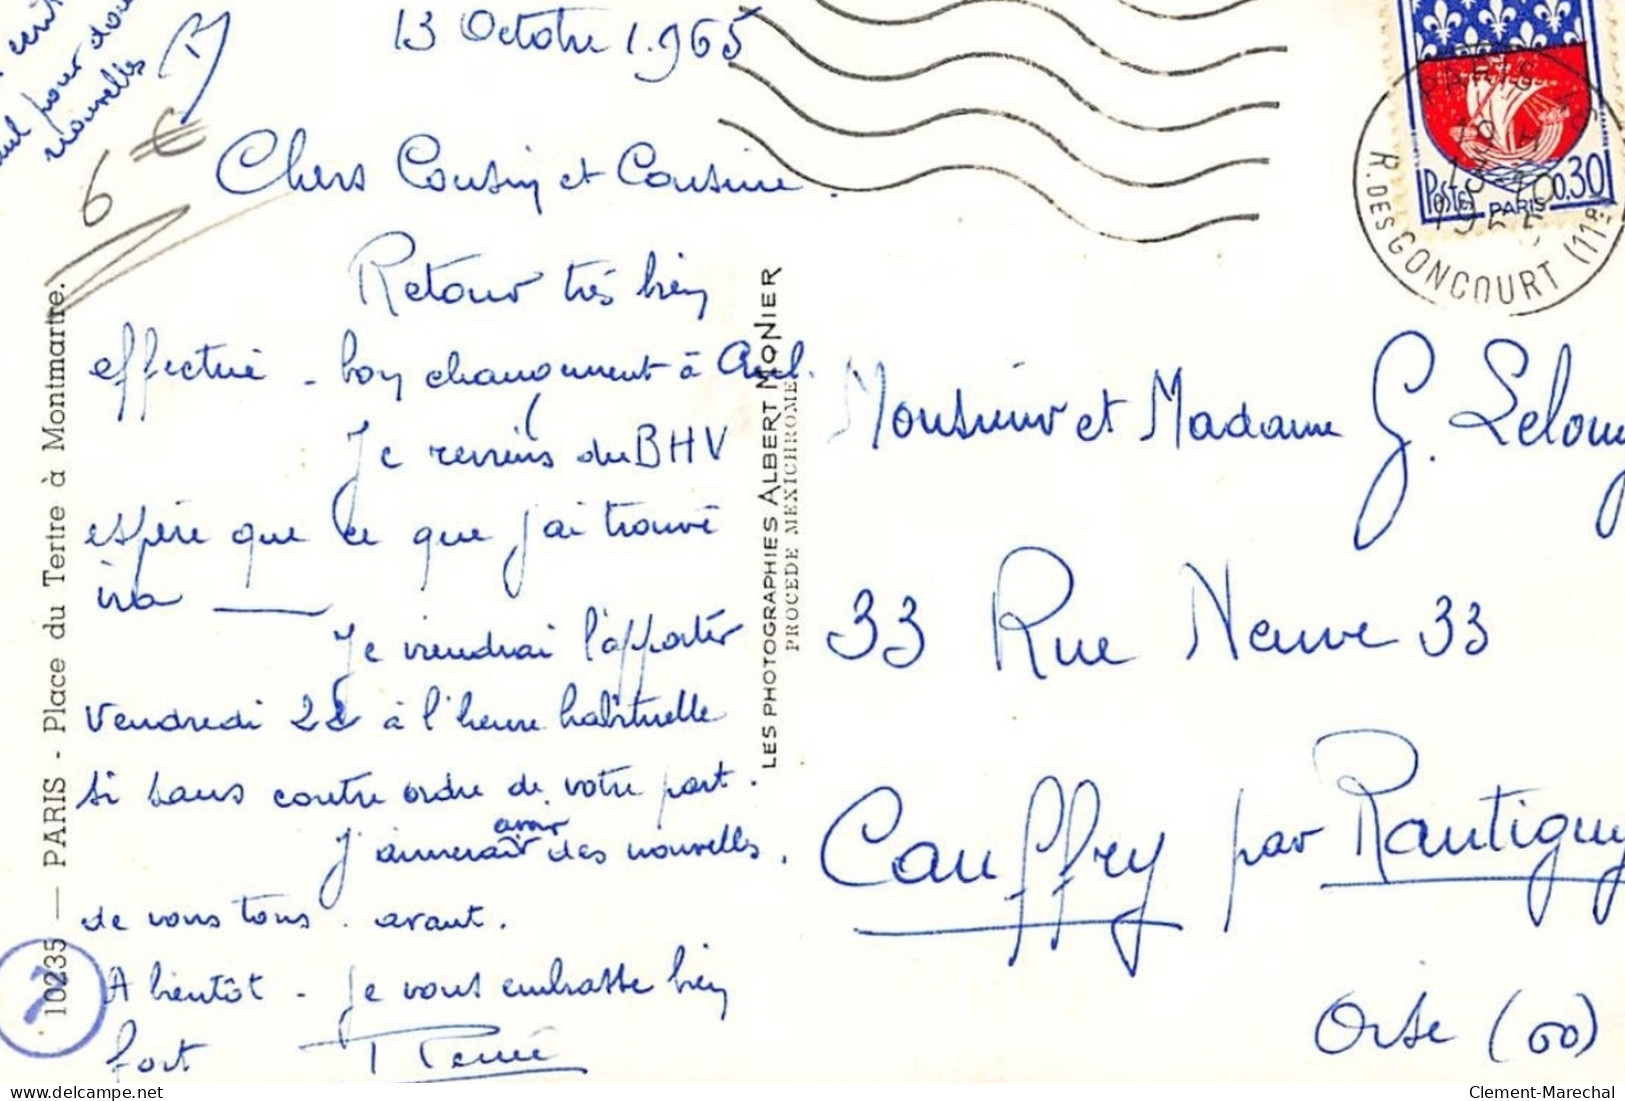 13 Octobre 1.965
Chers Cousin et Cousine.
Retour très bien
effectué - bon changement à Aul.
Je reviens du BHV
espère que ce que j'ai trouvé
ira
Je viendrai l'apporter
Vendredi 22 à l'heure habituelle
si sans contre ordre de votre part.
J'aimerais avoir des nouvelles.
de vous tous. avant.
A bientôt - Je vous embrasse bien
fort
pour
nouvelles
6 €
10235 — PARIS - Place du Tertre à Montmartre.
LES PHOTOGRAPHIES ALBERT MONIER
PROCÉDÉ MEXICHROME
PARIS
13-10
R. DES GONCOURT (11E)
Postes 0.30
PARIS
Monsieur et Madame G. Lelong
33 Rue Neuve 33
Cauffry par Rantigny
Oise (60)
Clement-Marechal